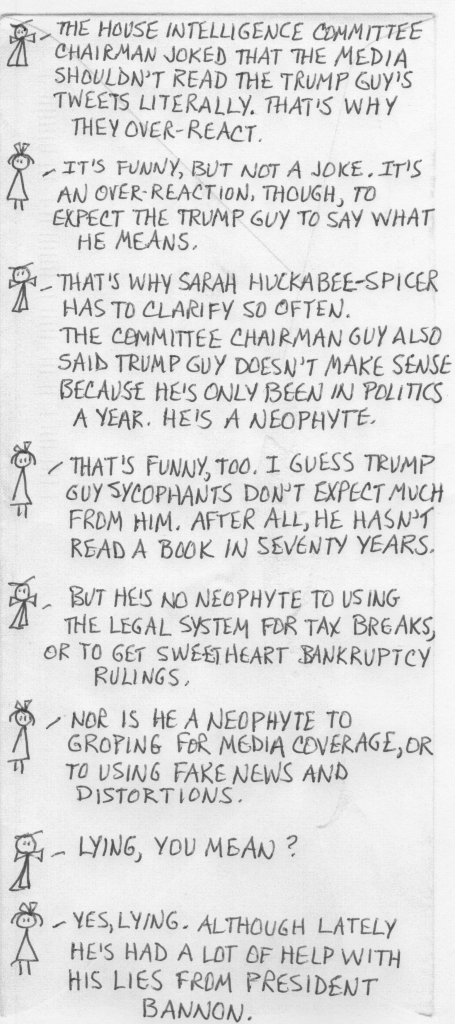 THE HOUSE INTELLIGENCE COMMITTEE
CHAIRMAN JOKED THAT THE MEDIA
SHOULDN'T READ THE TRUMP GUY'S
TWEETS LITERALLY. THAT'S WHY
THEY OVER-REACT.
IT'S FUNNY, BUT NOT A JOKE. IT'S
AN OVER-REACTION, THOUGH, TO
EXPECT THE TRUMP GUY TO SAY WHAT
HE MEANS.
THAT'S WHY SARAH HUCKABEE-SPICER
HAS TO CLARIFY SO OFTEN.
THE COMMITTEE CHAIRMAN GUY ALSO
SAID TRUMP GUY DOESN'T MAKE SENSE
BECAUSE HE'S ONLY BEEN IN POLITICS
A YEAR. HE'S A NEOPHYTE.
THAT'S FUNNY, TOO. I GUESS TRUMP
GUY SYCOPHANTS DON'T EXPECT MUCH
FROM HIM. AFTER ALL, HE HASN'T
READ A BOOK IN SEVENTY YEARS.
BUT HE'S NO NEOPHYTE TO USING
THE LEGAL SYSTEM FOR TAX BREAKS,
OR TO GET SWEETHEART BANKRUPTCY
RULINGS.
NOR IS HE A NEOPHYTE TO
GROPING FOR MEDIA COVERAGE, OR
TO USING FAKE NEWS AND
DISTORTIONS.
LYING, YOU MEAN?
YES, LYING. ALTHOUGH LATELY
HE'S HAD A LOT OF HELP WITH
HIS LIES FROM PRESIDENT
BANNON.